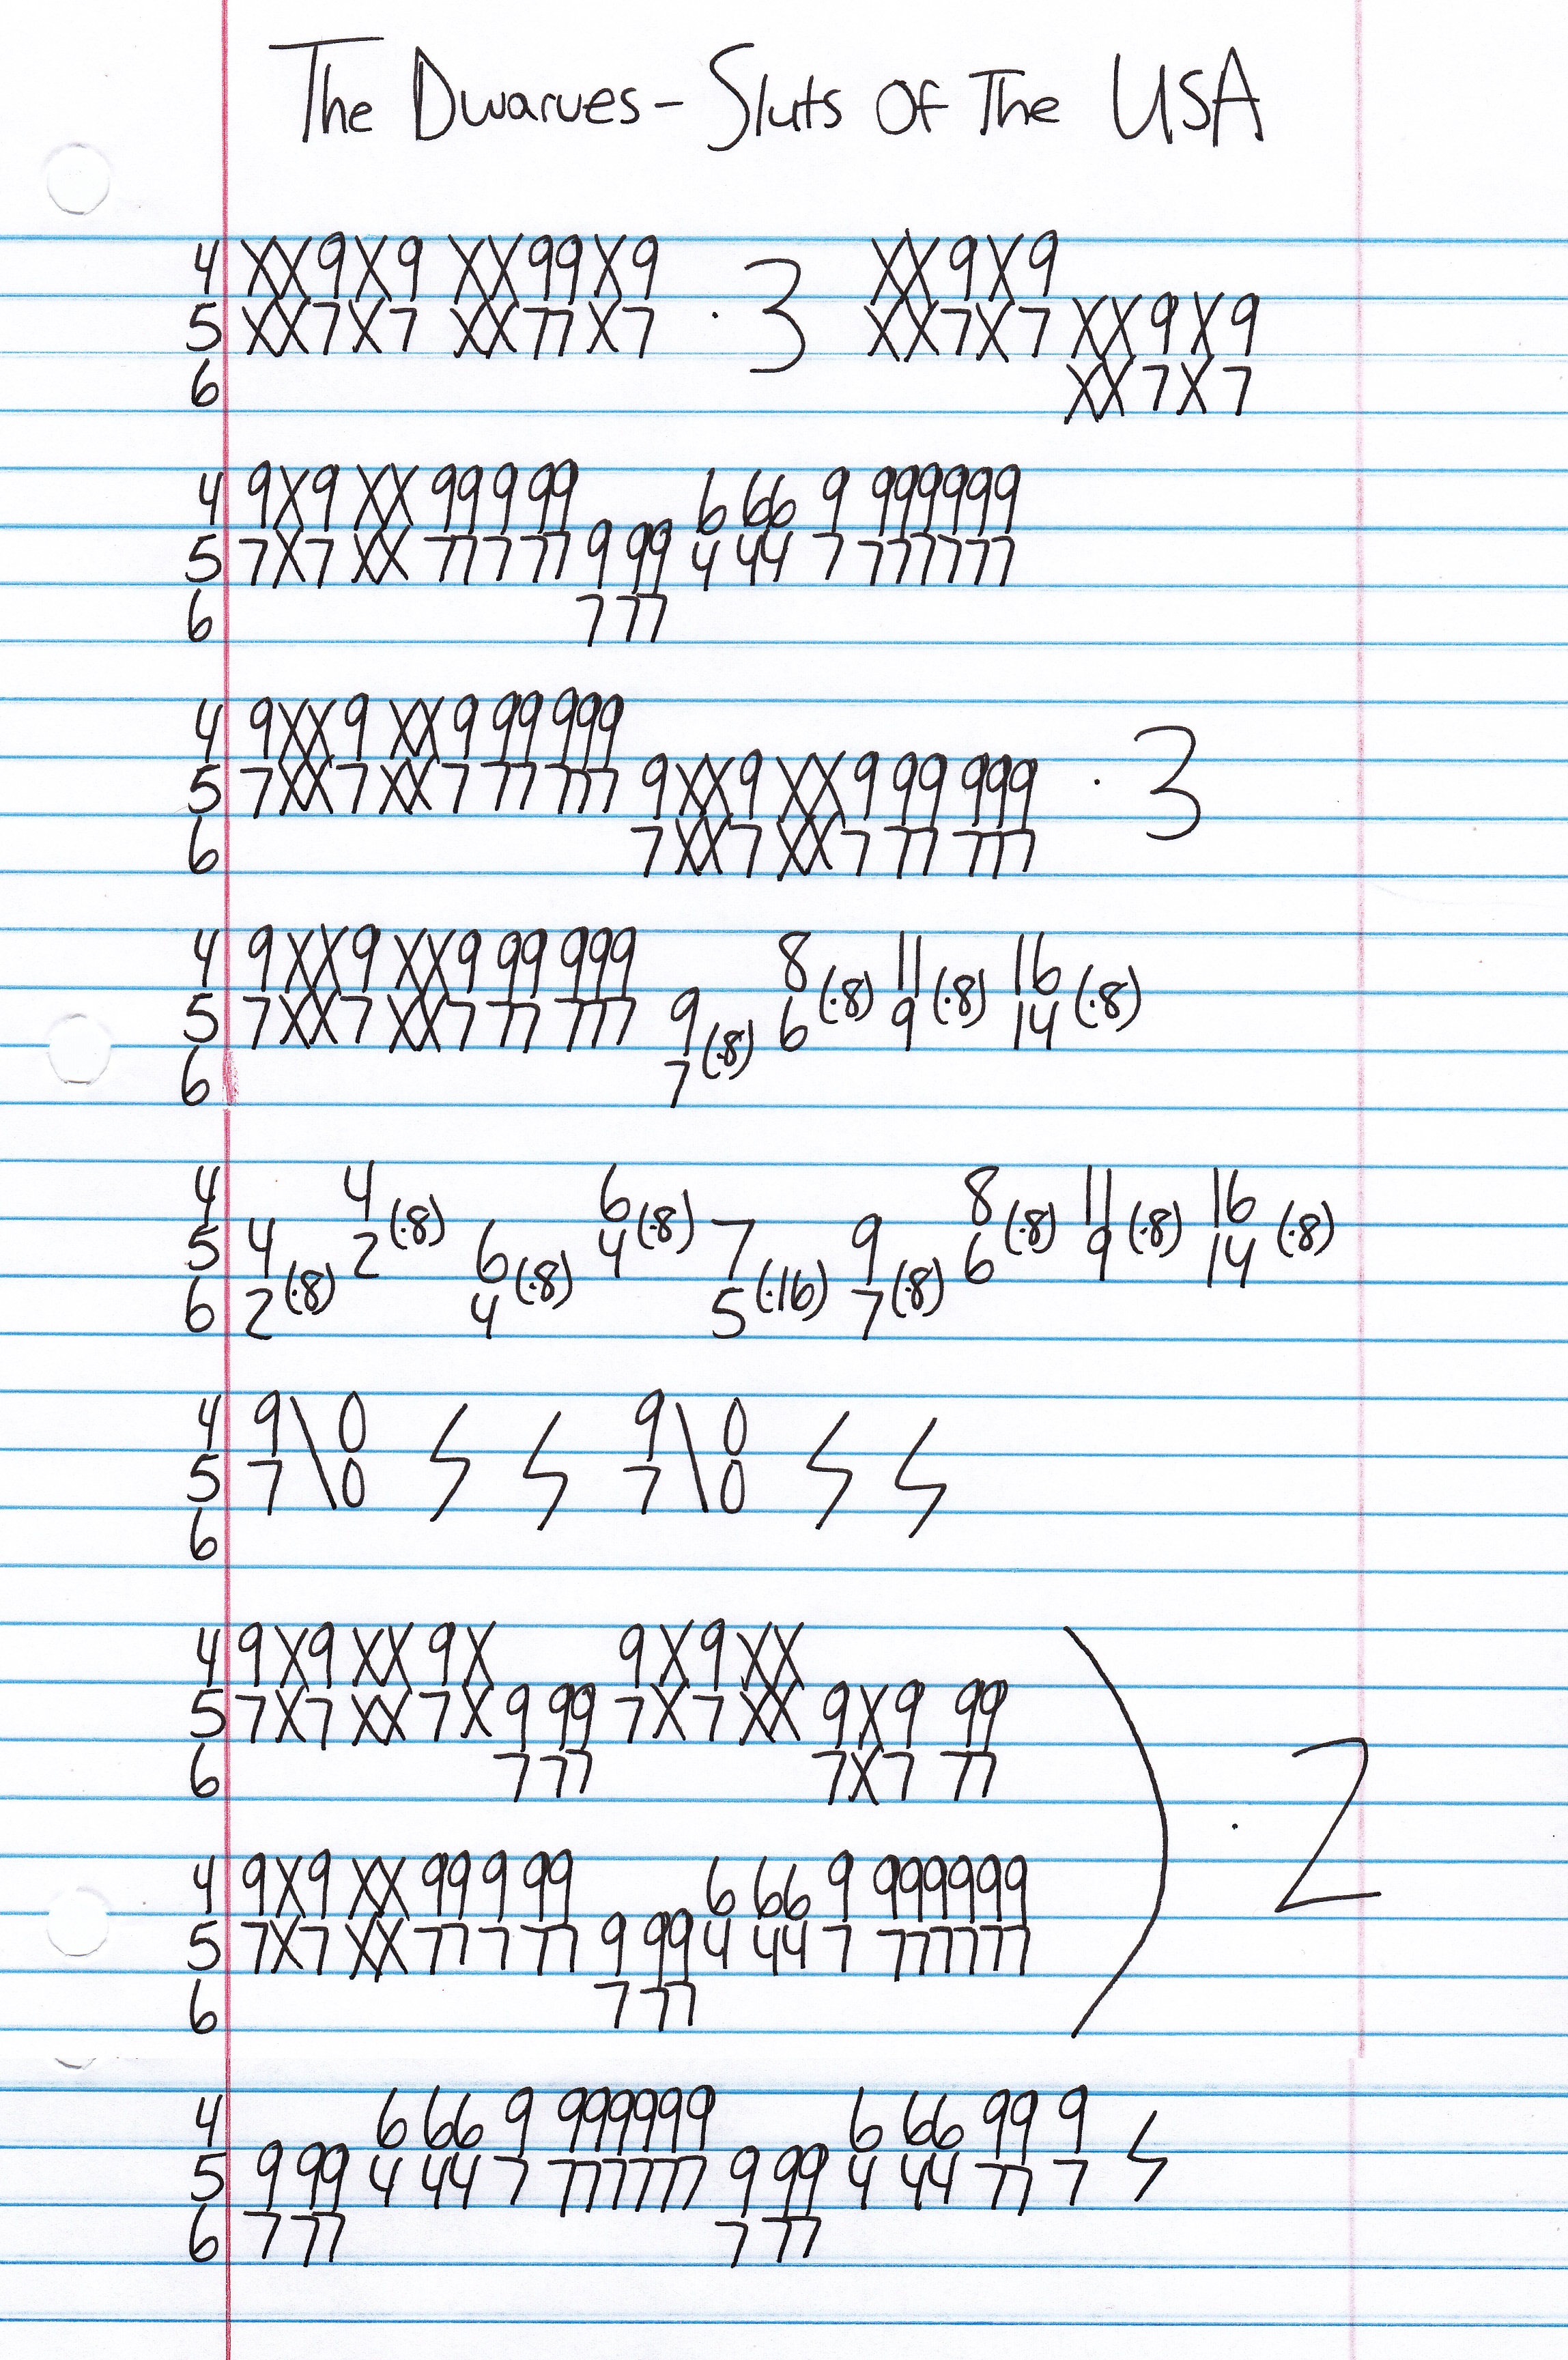 The Dwarves - Sluts Of The USA
4 XX9X9 XX99X9 XX9X9
5 XX7X7 XX77X7 · 3 XX7X7 XX9X9
6 XX7X7
4 9X9 XX 99 9 99 6 66 9 999999
5 7X7 XX 77 7 77 9 99 4 44 7 777777
6 7 77
4 9XX9 XX9 99 999
5 7XX7 XX7 77 777 9XX9 XX9 99 999 · 3
6 7XX7 XX7 77 777
4 9XX9 XX9 99 999 8 11 16
5 7XX7 XX7 77 777 9 (·8) 6 (·8) 9 (·8) 14 (·8)
6 7
4 4 6 8 11 16
5 4 2 (·8) 6 4 (·8) 7 9 6 (·8) 9 (·8) 14 (·8)
6 2 (·8) 4 (·8) 5 (·16) 7 (·8)
4 9\0 9\0
5 7\0 7\0
6
4 9X9 XX 9X 9X9 XX
5 7X7 XX 7X 9 99 7X7 XX 9X9 99
6 7 77 7X7 77
) · 2
4 9X9 XX 99 9 99 6 66 9 999999
5 7X7 XX 77 7 77 9 99 4 44 7 777777
6 7 77
4 6 66 9 999999 6 66 99 9
5 9 99 4 44 7 777777 9 99 4 44 77 7
6 7 77 7 77